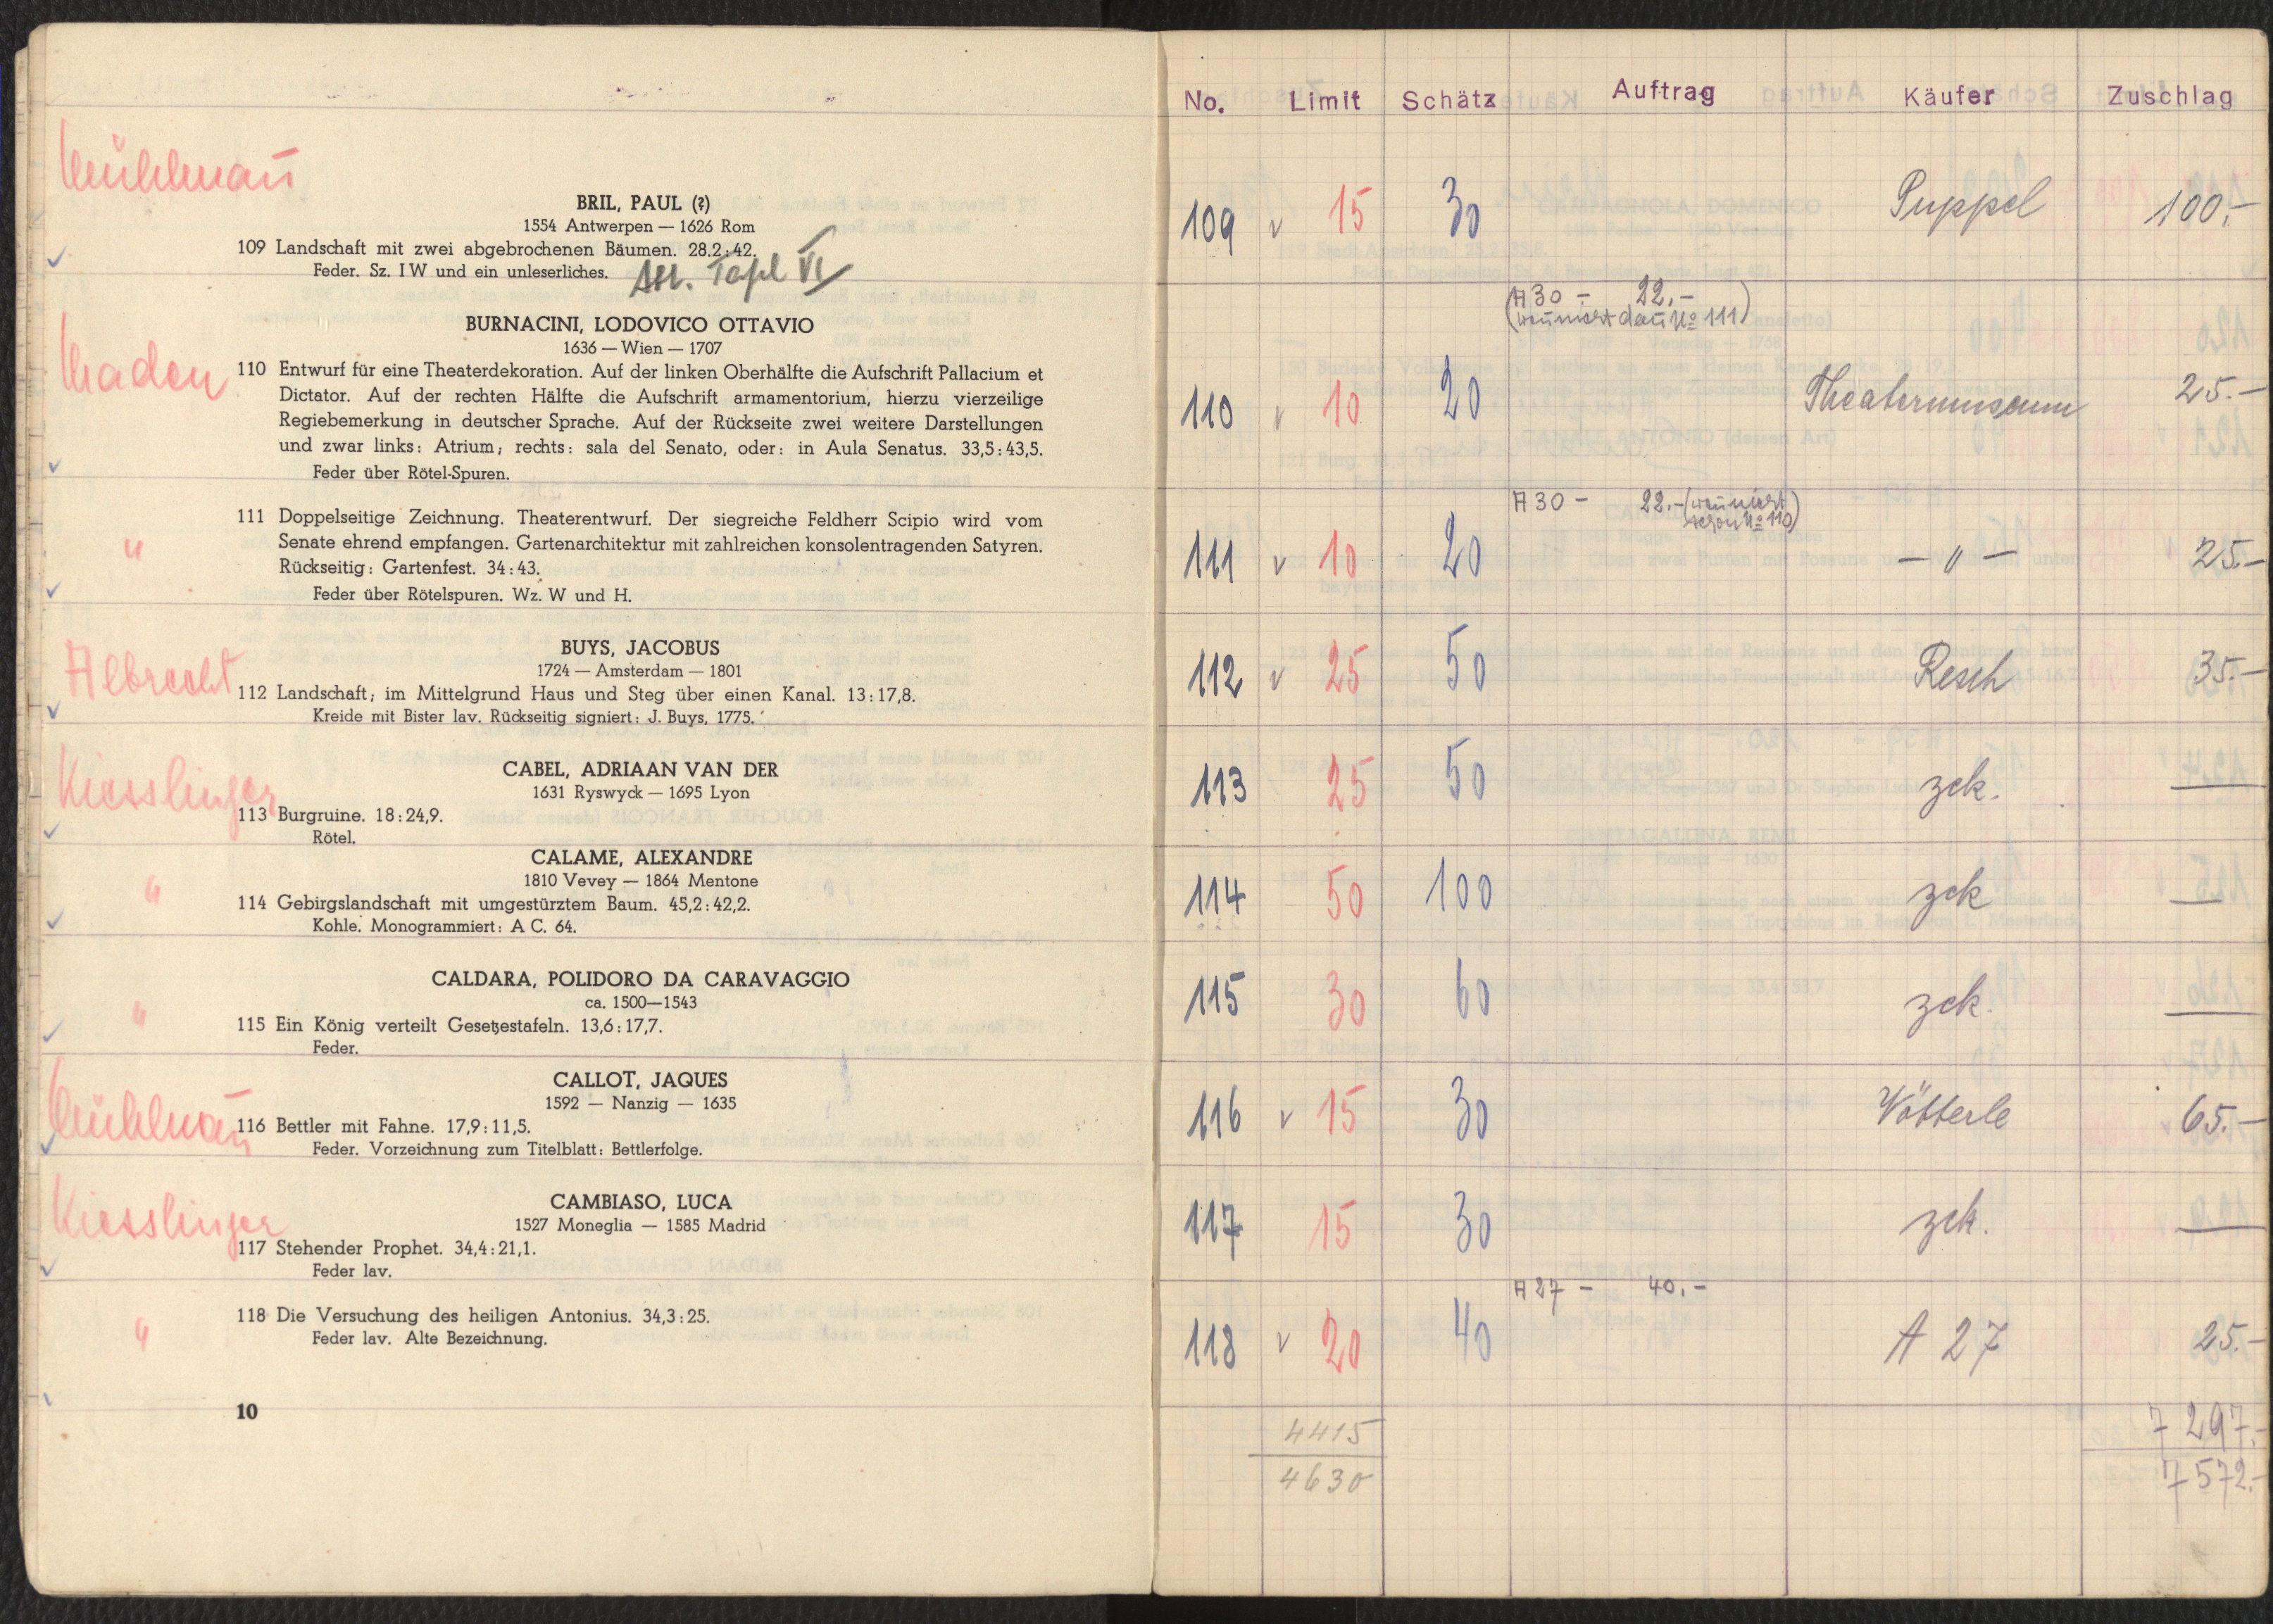 Mühlmañ
BRIL, PAUL (?)
1554 Antwerpen — 1626 Rom
109 Landschaft mit zwei abgebrochenen Bäumen. 28.2:42.
Feder. Sz. I W und ein unleserliches.
Tafel VI
BURNACINI, LODOVICO OTTAVIO
1636 — Wien — 1707
110 Entwurf für eine Theaterdekoration. Auf der linken Oberhälfte die Aufschrift Pallacium et
Dictator. Auf der rechten Hälfte die Aufschrift armamentorium, hierzu vierzeilige
Regiebemerkung in deutscher Sprache. Auf der Rückseite zwei weitere Darstellungen
und zwar links: Atrium; rechts: sala del Senato, oder: in Aula Senatus. 33,5:43,5.
Feder über Rötel-Spuren.
"
111 Doppelseitige Zeichnung. Theaterentwurf. Der siegreiche Feldherr Scipio wird vom
Senate ehrend empfangen. Gartenarchitektur mit zahlreichen konsolentragenden Satyren.
Rückseitig: Gartenfest. 34:43.
Feder über Rötelspuren. Wz. W und H.
Albrecht
BUYS, JACOBUS
1724 — Amsterdam — 1801
112 Landschaft; im Mittelgrund Haus und Steg über einen Kanal. 13:17,8.
Kreide mit Bister lav. Rückseitig signiert: J. Buys, 1775.
Kiesslinger
CABEL, ADRIAAN VAN DER
1631 Ryswyck — 1695 Lyon
113 Burgruine. 18:24,9.
Rötel.
CALAME, ALEXANDRE
1810 Vevey — 1864 Mentone
"
114 Gebirgslandschaft mit umgestürztem Baum. 45,2:42,2.
Kohle. Monogrammiert: A C. 64.
CALDARA, POLIDORO DA CARAVAGGIO
ca. 1500—1543
"
115 Ein König verteilt Gesetzestafeln. 13,6:17,7.
Feder.
Mühlmañ
CALLOT, JAQUES
1592 — Nanzig — 1635
116 Bettler mit Fahne. 17,9:11,5.
Feder. Vorzeichnung zum Titelblatt: Bettlerfolge.
Kiesslinger
CAMBIASO, LUCA
1527 Moneglia — 1585 Madrid
117 Stehender Prophet. 34,4:21,1.
Feder lav.
"
118 Die Versuchung des heiligen Antonius. 34,3:25.
Feder lav. Alte Bezeichnung.
10
No. Limit Schätz Auftrag Käufer Zuschlag
109 v 15 30 Puppel 100.-
(A 30 - 22.-
dañ No 111)
110 v 10 20 Theatermuseum 25.-
A 30 - 22.-
No 110)
111 v 10 20 - " - 25.-
112 v 25 50 Resch 35.-
113 25 50 zck. —
114 50 100 zck —
115 30 60 zck. —
116 v 15 30 Wötterle 65.-
117 15 30 zck. —
A 27 - 40.-
118 v 20 40 A 27 25.-
4415 7297.-
4630 7572.-